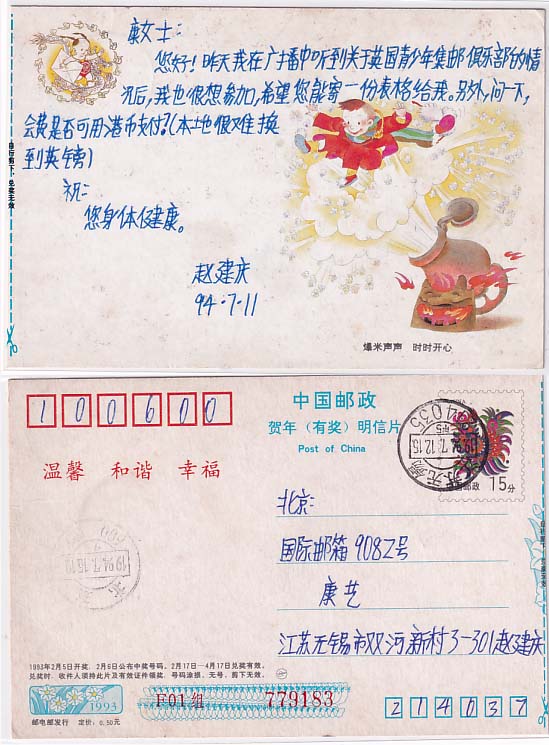 康女士:
您好!昨天我在广播中听到关于英国青少年集邮俱乐部的情
况后,我也很想参加,希望您能寄一份表格给我。另外,问一下,
会费是否可用港币支付?(本土也很难换
到英镑)
祝:
您身体健康。
赵建庆
94.7.11
爆米声声 时时开心
100600
中国邮政
贺年(有奖)明信片
Post of China
温馨 和谐 幸福
中国邮政 15分
北京:
国际邮箱9082号
康艺
江苏无锡市双河新村3-301赵建庆
1993年2月5日开奖。2月6日公布中奖号码。2月17日—4月17日兑奖有效。
兑奖时,收件人须持此片及有效证件领奖。号码涂损、无号、剪下无效。
1993
F01组 779183
邮电部发行 定价:0.50元
214037